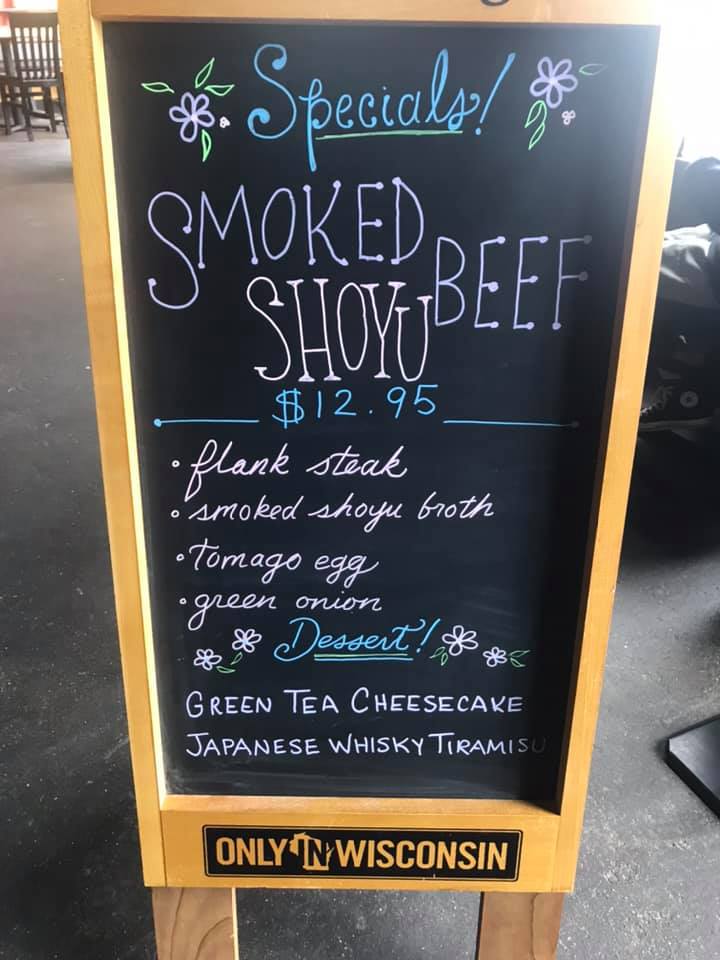 Specials!
SMOKED BEEF
SHOYU
$12.95
• flank steak
• smoked shoyu broth
• Tomago egg
• green onion
Dessert!
GREEN TEA CHEESECAKE
JAPANESE WHISKY TIRAMISU
ONLY IN WISCONSIN